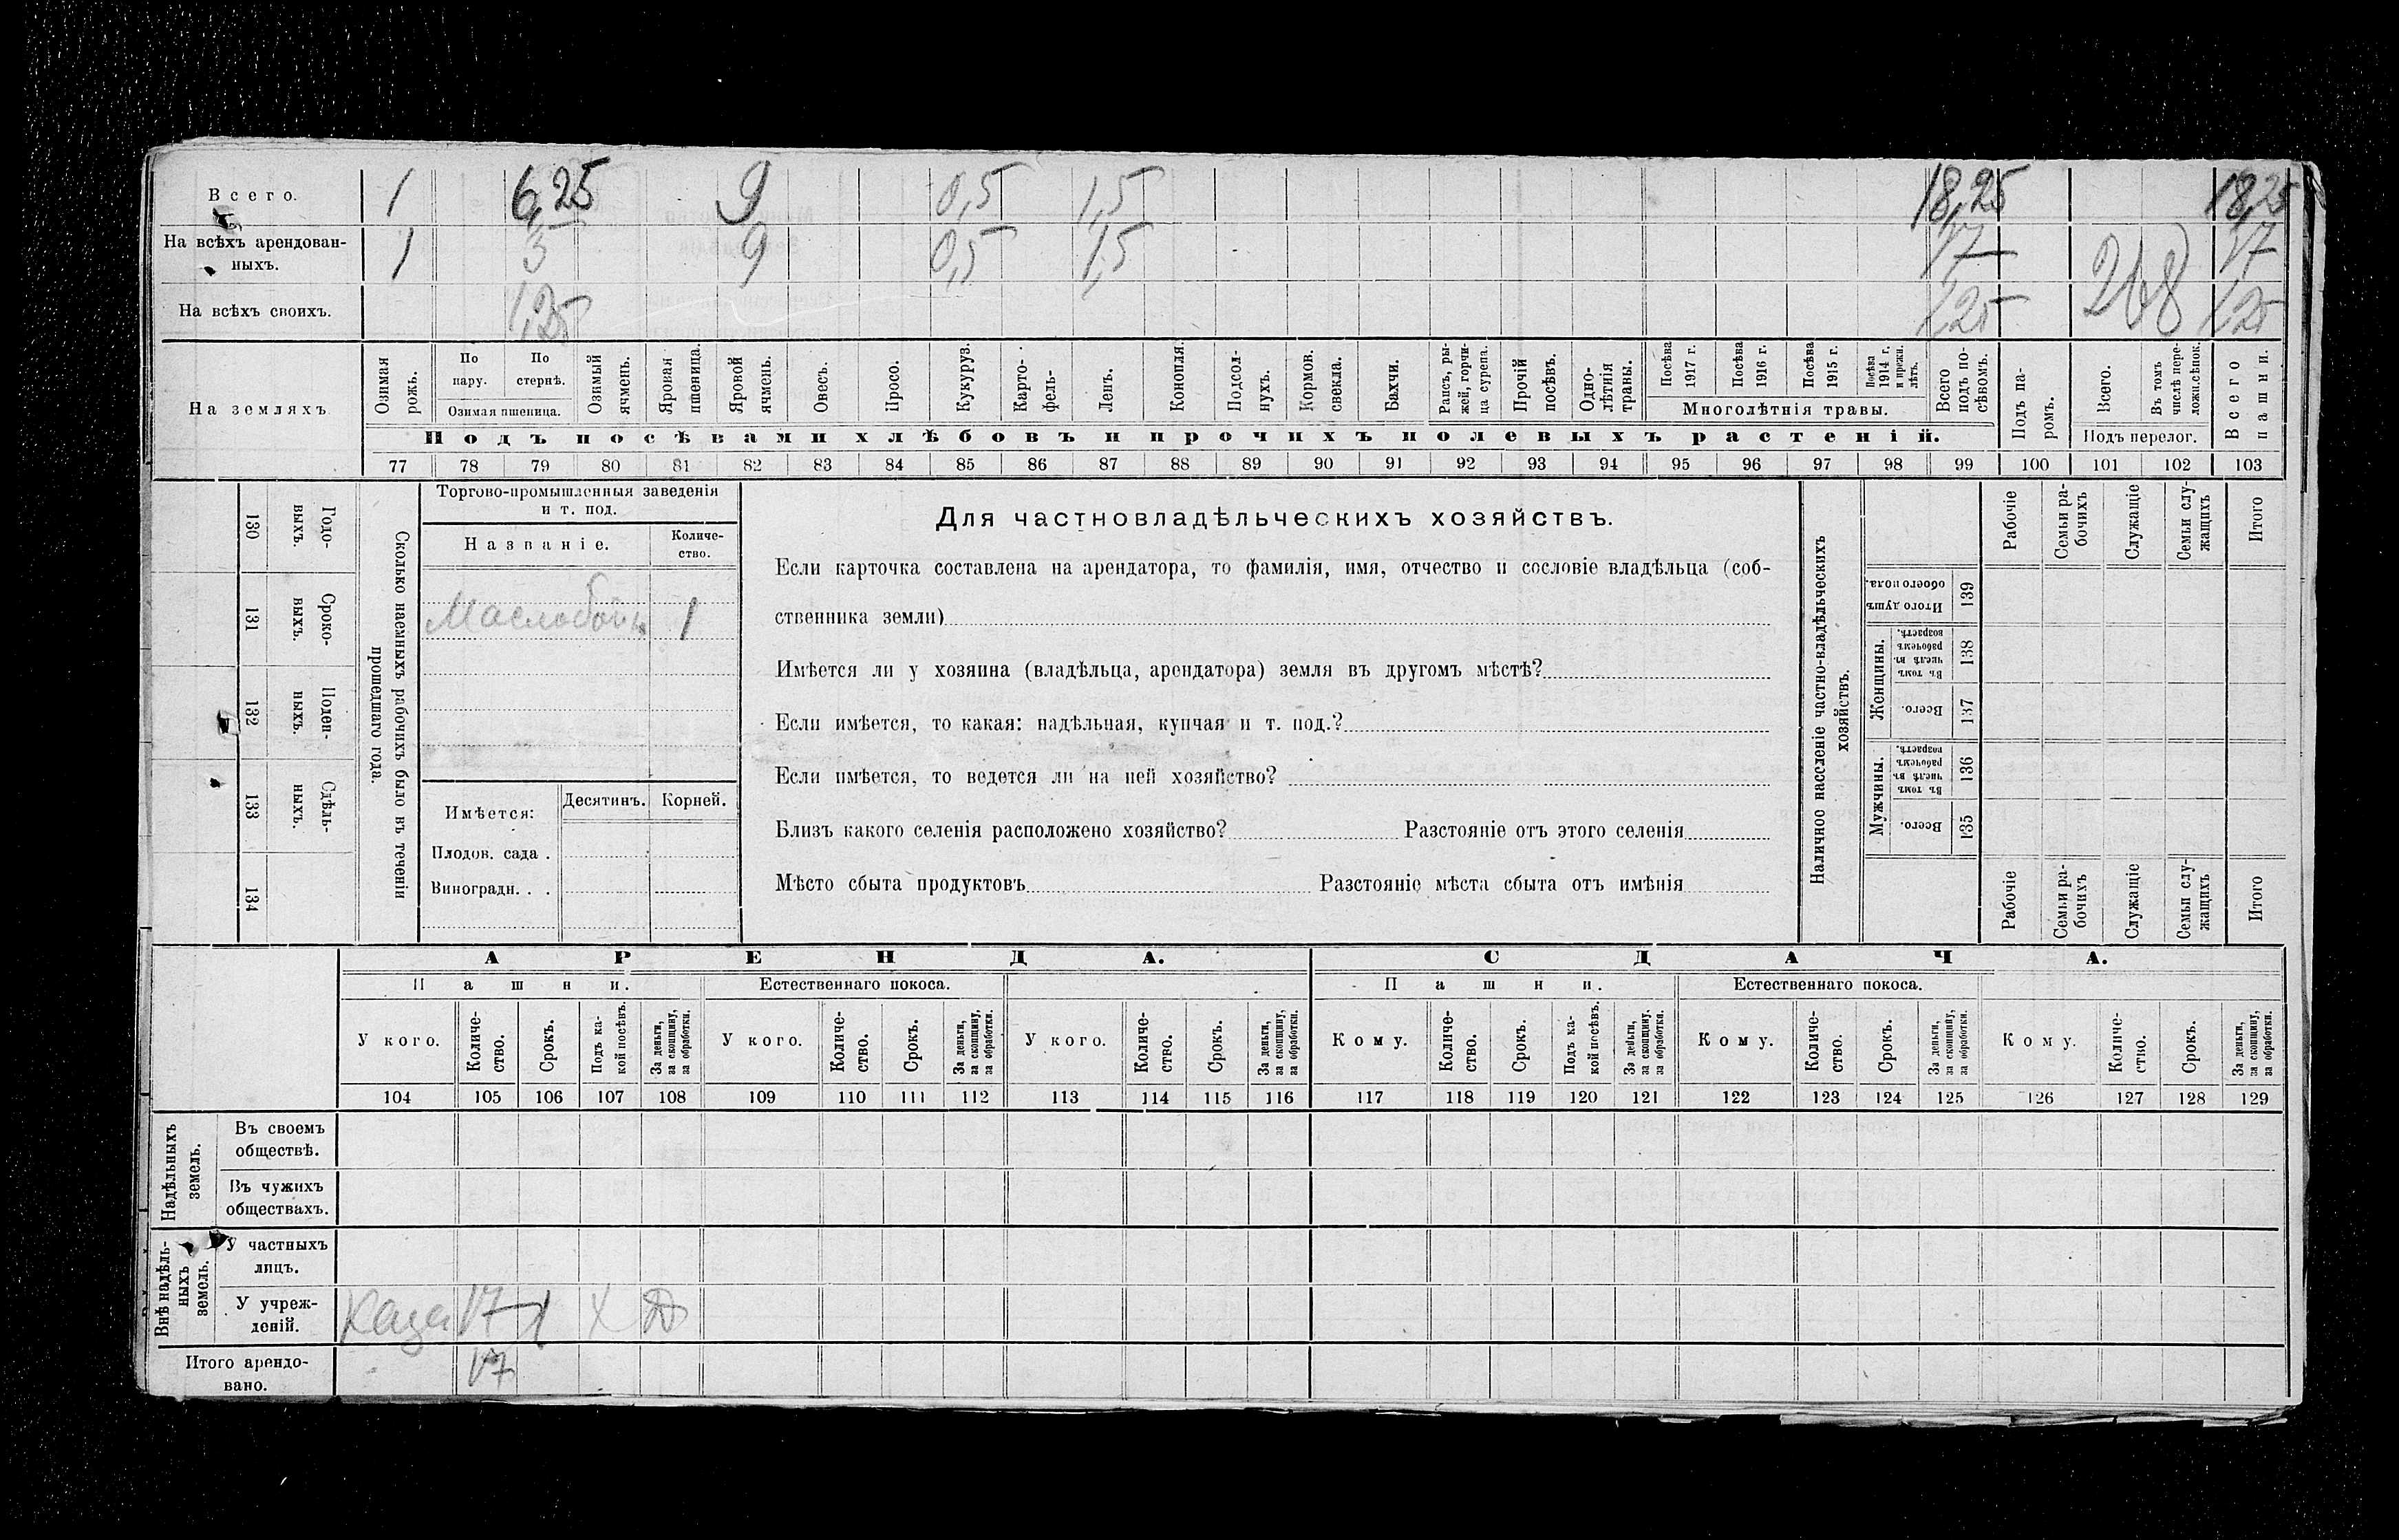 Всего. 1 6,25 9 0,5 1,5 18,25 18,25
На всѣхъ арендован-
ныхъ. 1 5 9 0,5 1,5 17 17
На всѣхъ своихъ. 1,25 1,25 268 1,25
На земляхъ
Озимая рожь.
По пару.
По стернѣ.
Озимая пшеница.
Озимый ячмень.
Яровая пшеница.
Яровой ячмень.
Овесъ.
Просо.
Кукуруз.
Карто-
фель-
Ленъ.
Конопля.
Подсол-
нухъ.
Кормов.
свекла.
Бахчи.
Рапсъ, ры-
жей, горчи-
ца сурепа.
Прочій
посѣвъ.
Одно-
лѣтнія
травы.
Посѣва
1917 г.
Посѣва
1916 г.
Посѣва
1915 г.
Посѣва
1914 г.
и прежн.
лѣтъ.
Многолѣтнія травы.
Всего
подъ по-
сѣвомъ.
Подъ па-
ромъ.
Всего.
Въ томъ
числѣ пере-
ложн.сѣнок.
Подъ перелог.
Всего
пашни.
Подъ посѣвами хлѣбовъ и прочихъ полевыхъ растеній.
77 78 79 80 81 82 83 84 85 86 87 88 89 90 91 92 93 94 95 96 97 98 99 100 101 102 103
130 Годо-
выхъ.
131 Сроко-
выхъ.
132 Поден-
ныхъ.
133 Сдѣль-
ныхъ.
134
Сколько наемныхъ рабочихъ было въ теченіи
прошедшаго года.
Торгово-промышленныя заведенія
и т. под.
Названіе.
Количе-
ство.
Маслобойн 1
Имѣется: Десятинъ. Корней.
Плодов. сада .
Виноградн. . .
Для частновладѣльческихъ хозяйствъ.
Если карточка составлена на арендатора, то фамилія, имя, отчество и сословіе владѣльца (соб-
ственника земли)
Имѣется ли у хозяина (владѣльца, арендатора) земля въ другомъ мѣстѣ?
Если имѣется, то какая: надѣльная, купчая и т. под.?
Если имѣется, то ведется ли на ней хозяйство?
Близъ какого селенія расположено хозяйство? Разстояніе отъ этого селенія
Мѣсто сбыта продуктовъ Разстояніе мѣста сбыта отъ имѣнія
Наличное населеніе частно-владѣльческихъ
хозяйствъ.
Рабочіе
Семьи ра-
бочихъ
Служащіе
Семьи слу-
жащихъ
Итого
Итого душъ
обоего пола.
139
Женщины.
Въ томъ
числѣ въ
рабочемъ
возрастѣ.
138
Всего.
137
Мужчины.
Въ томъ
числѣ въ
рабочемъ
возрастѣ.
136
Всего.
135
Рабочіе
Семьи ра-
бочихъ
Служащіе
Семьи слу-
жащихъ
Итого
АРЕНДА. СДАЧА.
Пашни. Естественнаго покоса. Пашни. Естественнаго покоса.
У кого.
Количе-
ство.
Срокъ.
Подъ ка-
кой посѣвъ.
За деньги,
за скопщину,
за обработки.
У кого.
Количе-
ство.
Срокъ.
За деньги,
за скопщину,
за обработки.
У кого.
Количе-
ство.
Срокъ.
За деньги,
за скопщину,
за обработки.
Кому.
Количе-
ство.
Срокъ.
Подъ ка-
кой посѣвъ.
За деньги,
за скопщину.
за обработки.
Кому.
Количе-
ство.
Срокъ.
За деньги,
за скопщину,
за обработки.
Кому.
Количе-
ство.
Срокъ.
За деньги,
за скопщину,
за обработки.
104 105 106 107 108 109 110 111 112 113 114 115 116 117 118 119 120 121 122 123 124 125 126 127 128 129
Надѣльныхъ
земель.
Въ своемъ
обществѣ.
Въ чужихъ
обществахъ.
Внѣ надѣль-
ныхъ
земель.
У частныхъ
лицъ.
У учреж-
деній. Каза 17 1 X Д
Итого арендо-
вано. 17